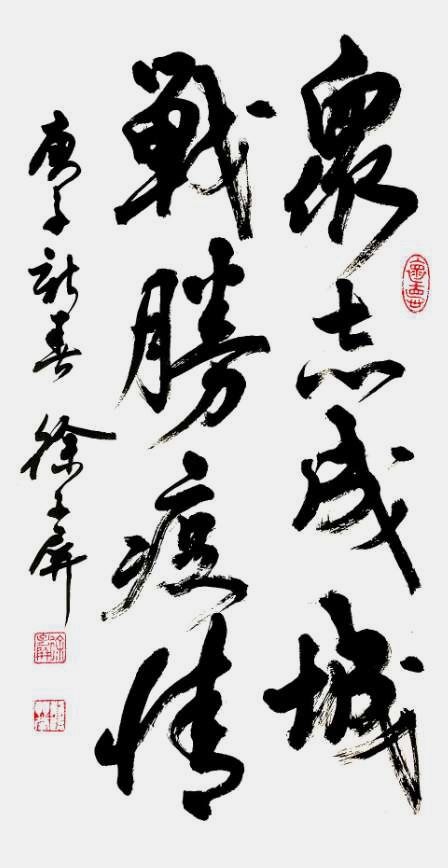 衆志成城
戰勝疫情
庚子新春 徐子屏